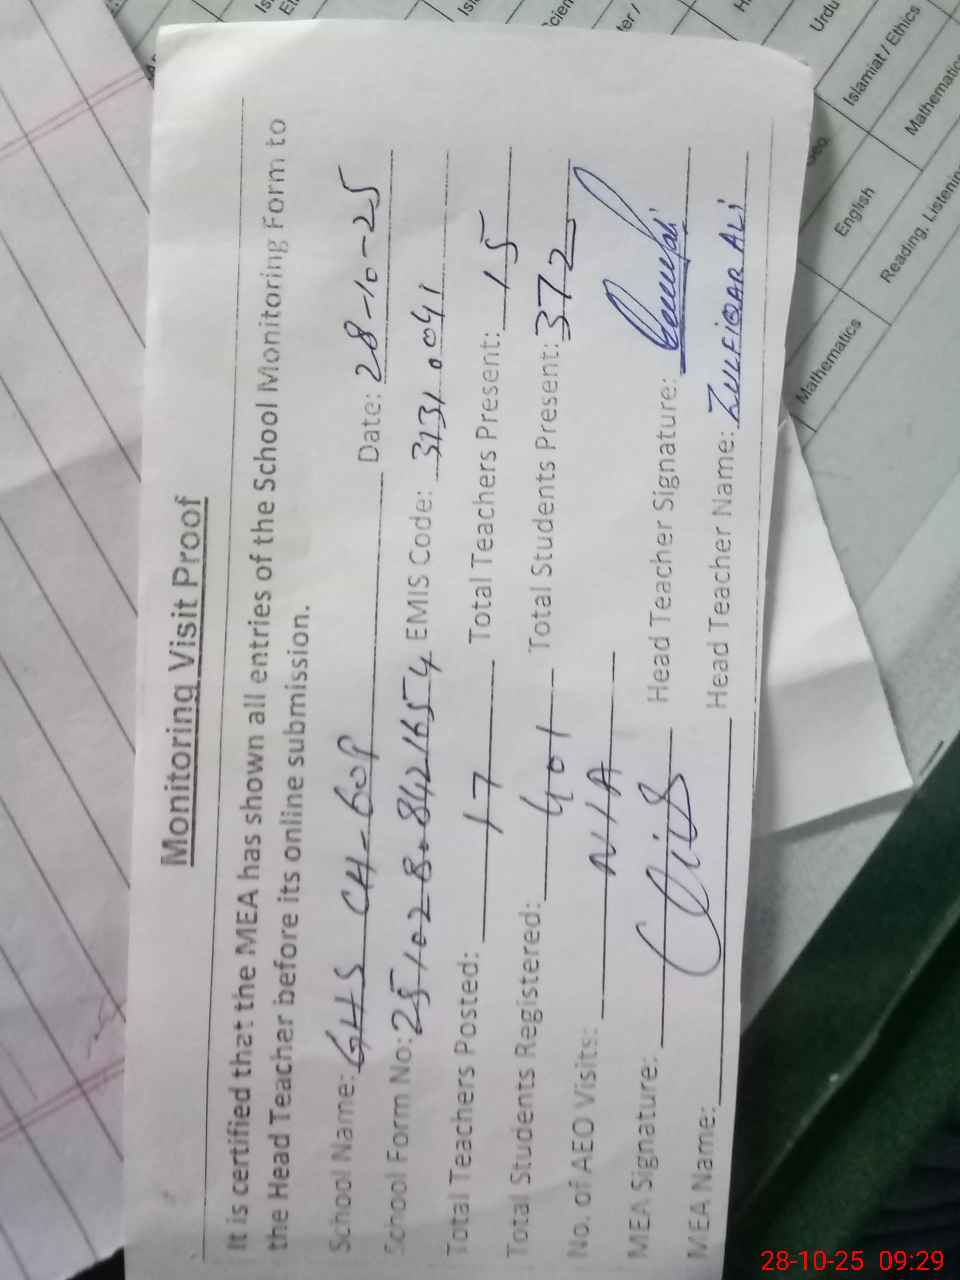 Monitoring Visit Proof
It is certified that the MEA has shown all entries of the School Monitoring Form to
the Head Teacher before its online submission.
School Name: GHS CH-60P Date: 28-10-25
School Form No: 25102808421654 EMIS Code: 31310041
Total Teachers Posted: 17 Total Teachers Present: 15
Total Students Registered: 401 Total Students Present: 372
No. of AEO Visits: N/A
MEA Signature: Head Teacher Signature:
MEA Name: Head Teacher Name: ZULFIQAR ALi
Urdu
Islamiat / Ethics
English
Mathematics
Reading, Listening
Mathematics
28-10-25 09:29